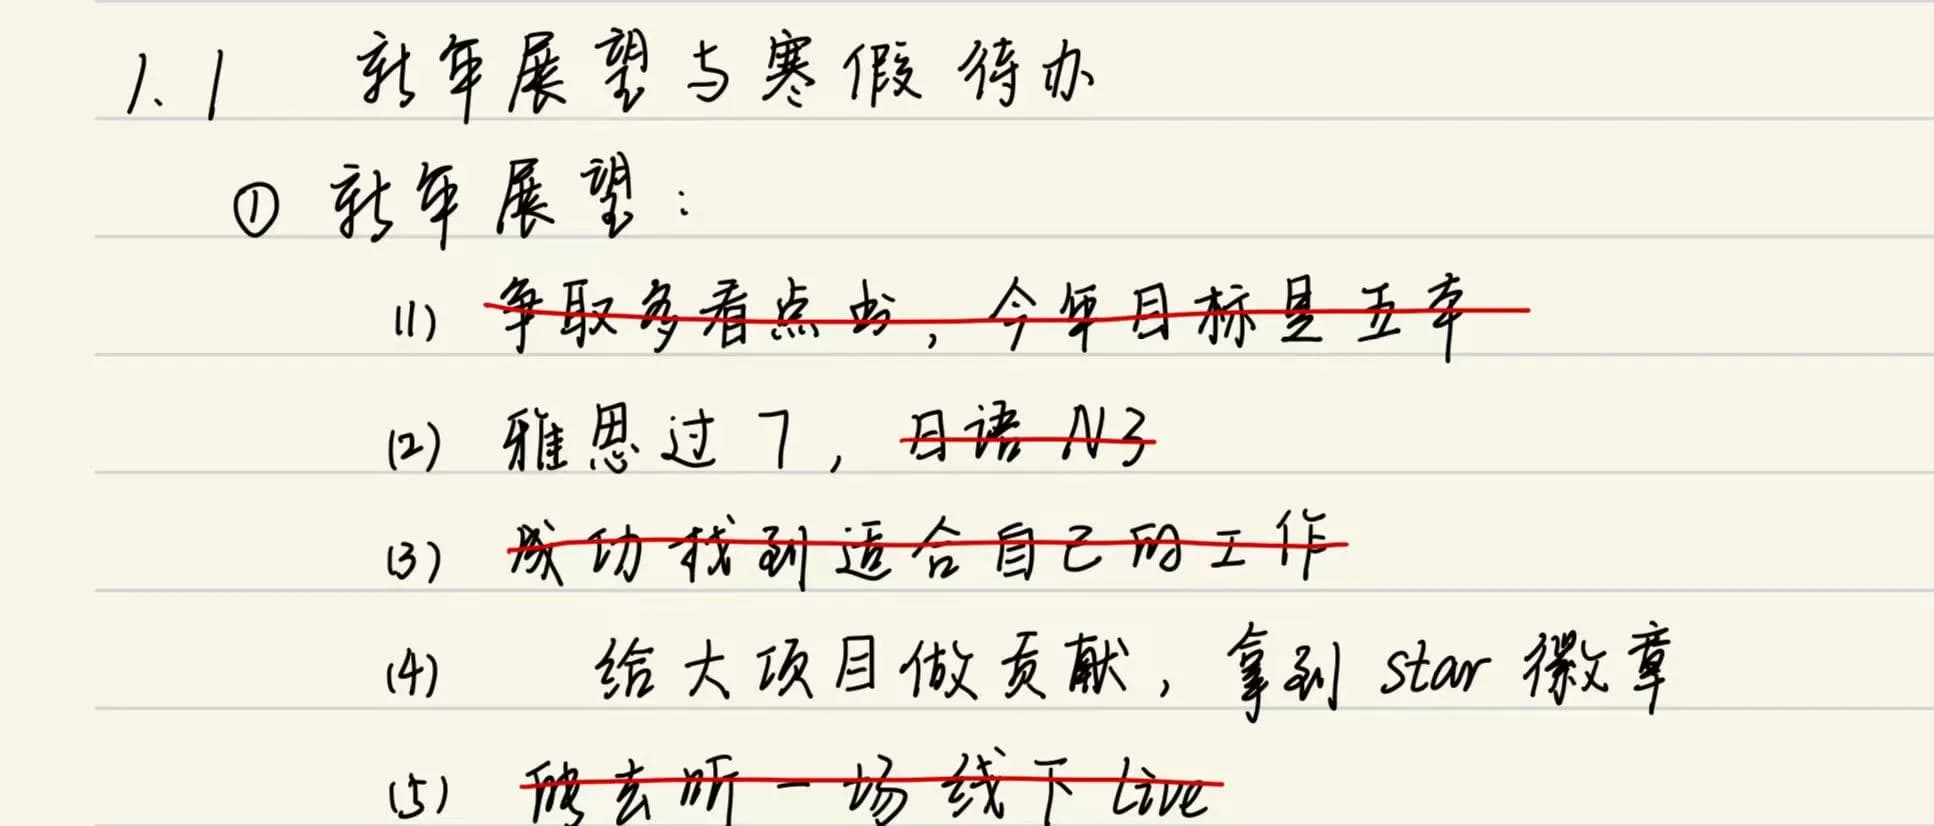 1.1 新年展望与寒假待办
① 新年展望：
(1) 争取多看点书，今年目标是五本
(2) 雅思过7，日语N3
(3) 成功找到适合自己的工作
(4) 给大项目做贡献，拿到star徽章
(5) 能去听一场线下Live